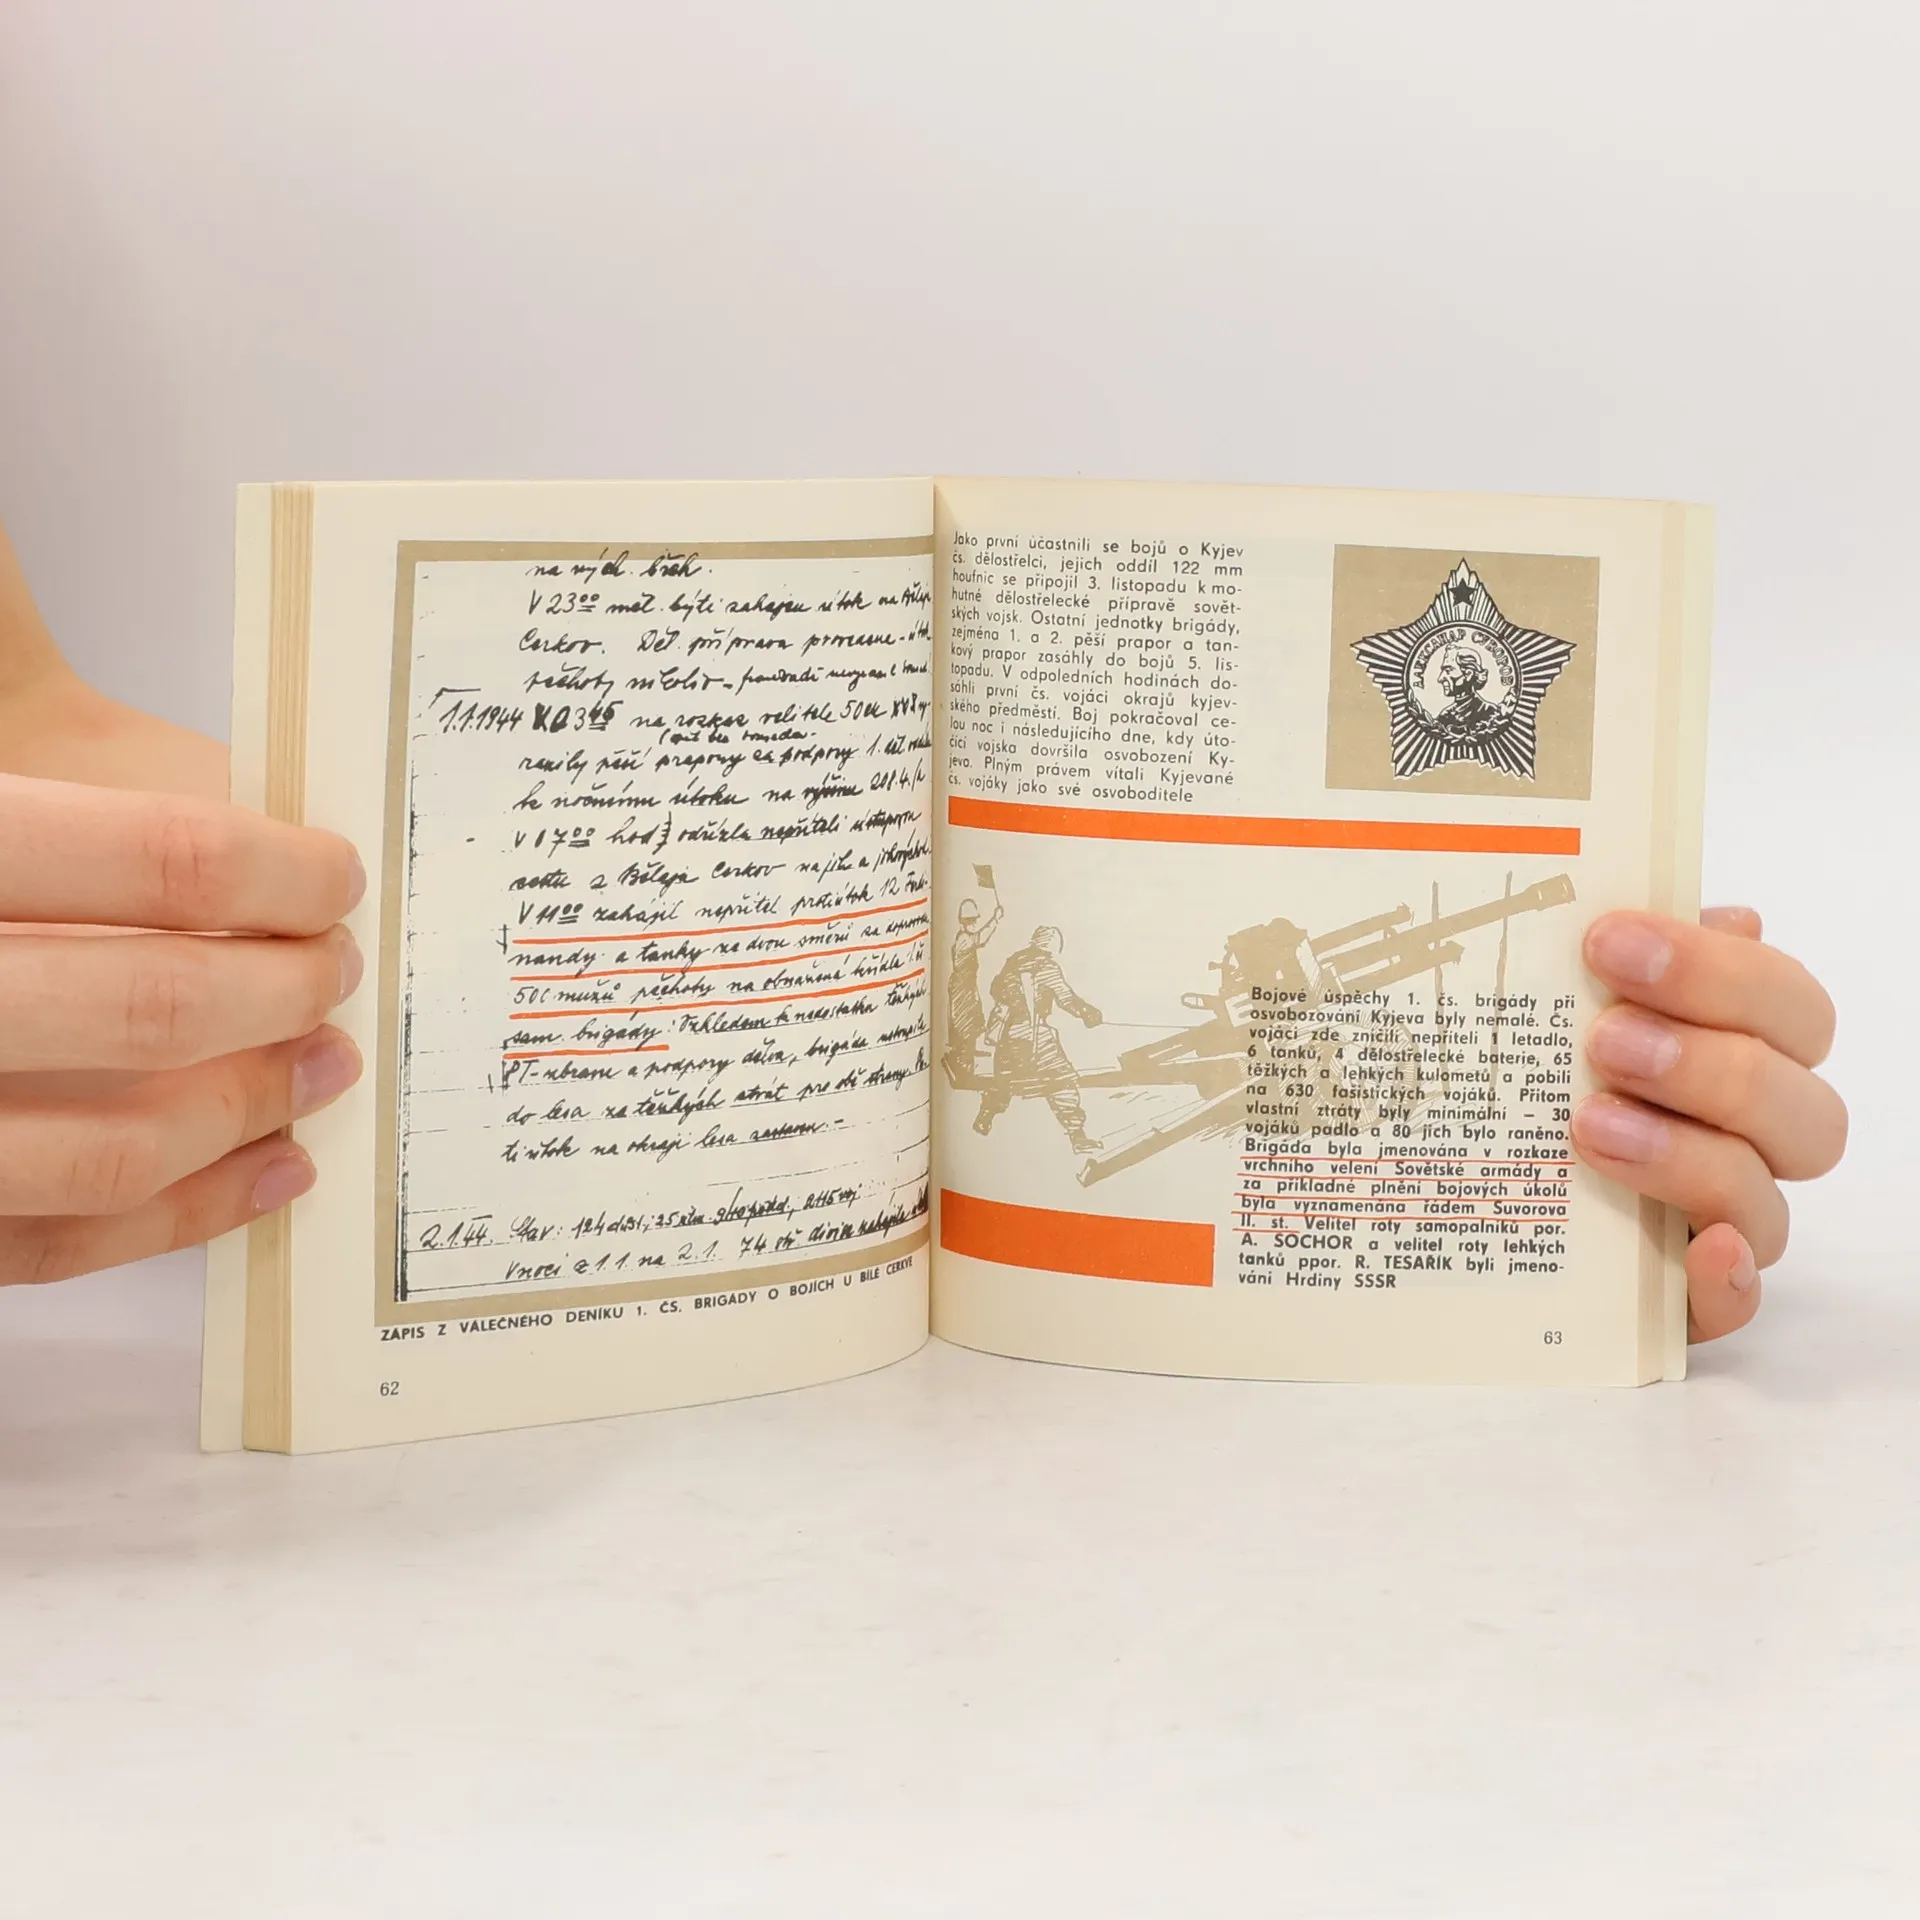 na vých. břeh.
V 23⁰⁰ měl býti zahájen útok na
Cerkov. Děl. příprava provedena –
pěchoty
1.1.1944 V 03⁴⁵ na rozkaz velitele 50
razily pěší prapory za podpory 1. děl.
k nočnímu útoku na výšinu 208.4
V 07⁰⁰ hod odřízla nepříteli ústupovou
cestu z Bělaja Cerkov na jih a
V 11⁰⁰ zahájil nepřítel protiútok 12 Ferdi-
nandy a tanky ze dvou směrů za doprovodu
500 mužů pěchoty na obnažená křídla 1. čs.
sam. brigády. Vzhledem k nedostatku těžkých
PT-zbraní a podpory dělva, brigáda ustoupila
do lesa za těžkých ztrát pro obě strany.
ti útok na okraji lesa zastaven. –
2.1.44. Stav: 124 důst.;
V noci z 1.1 na 2.1. 74 stř. divize zahájila
ZÁPIS Z VÁLEČNÉHO DENÍKU 1. ČS. BRIGÁDY O BOJÍCH U BÍLÉ CERKVE
62
Jako první účastnili se bojů o Kyjev
čs. dělostřelci, jejich oddíl 122 mm
houfnic se připojil 3. listopadu k mo-
hutné dělostřelecké přípravě sovět-
ských vojsk. Ostatní jednotky brigády,
zejména 1. a 2. pěší prapor a tan-
kový prapor zasáhly do bojů 5. lis-
topadu. V odpoledních hodinách do-
sáhli první čs. vojáci okrajů kyjev-
ského předměstí. Boj pokračoval ce-
lou noc i následujícího dne, kdy úto-
čící vojska dovršila osvobození Ky-
jeva. Plným právem vítali Kyjevané
čs. vojáky jako své osvoboditele
АЛЕКСАНДР СУВОРОВ
Bojové úspěchy 1. čs. brigády při
osvobozování Kyjeva byly nemalé. Čs.
vojáci zde zničili nepříteli 1 letadlo,
6 tanků, 4 dělostřelecké baterie, 65
těžkých a lehkých kulometů a pobili
na 630 fašistických vojáků. Přitom
vlastní ztráty byly minimální – 30
vojáků padlo a 80 jich bylo raněno.
Brigáda byla jmenována v rozkaze
vrchního velení Sovětské armády a
za příkladné plnění bojových úkolů
byla vyznamenána řádem Suvorova
II. st. Velitel roty samopalníků por.
A. SOCHOR a velitel roty lehkých
tanků ppor. R. TESAŘÍK byli jmeno-
váni Hrdiny SSSR
63